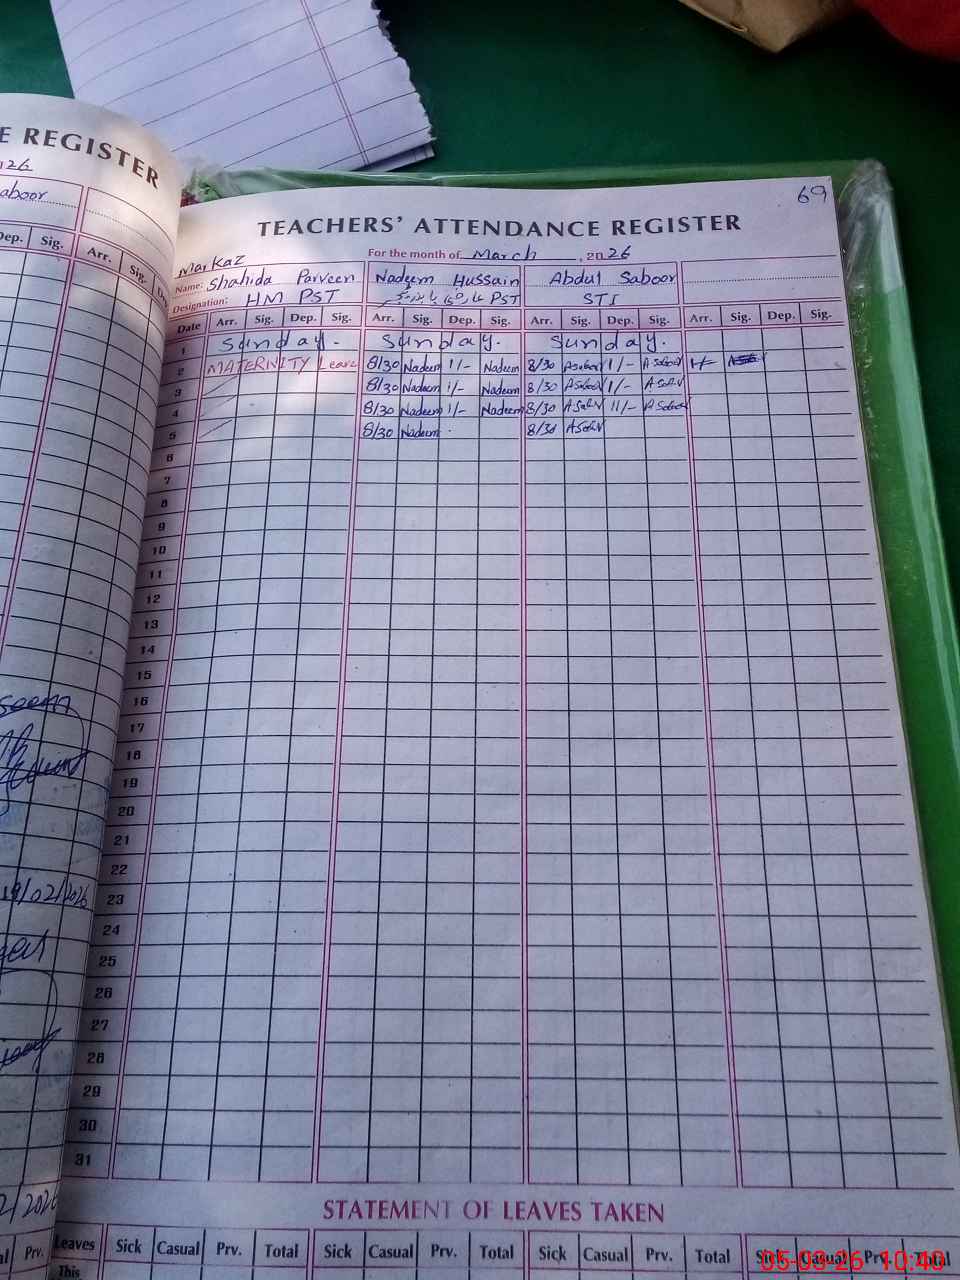 E REGISTER
126
aboor
Dep. Sig. Arr. Sig.
69
TEACHERS' ATTENDANCE REGISTER
For the month of March, 2026
Markaz
Name: Shahida Parveen Nadeem Hussain Abdul Saboor
Designation: HM PST PST STI
Date Arr. Sig. Dep. Sig. Arr. Sig. Dep. Sig. Arr. Sig. Dep. Sig. Arr. Sig. Dep. Sig.
1 Sunday. Sunday. Sunday.
2 MATERNITY Leave 8/30 Nadeem 11/- Nadeem 8/30 ASaboor 11/- ASaboor
3 8/30 Nadeem 1/- Nadeem 8/30 ASaboor 1/-
4 8/30 Nadeem 1/- Nadeem 8/30 11/- ASaboor
5 8/30 Nadeem 8/30
6
7
8
9
10
11
12
13
14
15
16
17
18
19
20
21
22
19/02/2026 23
24
25
26
27
28
29
30
31
2/2026
STATEMENT OF LEAVES TAKEN
Prv. Leaves Sick Casual Prv. Total Sick Casual Prv. Total Sick Casual Prv. Total Sick Casual Prv. Total
This
05-03-26 10:40